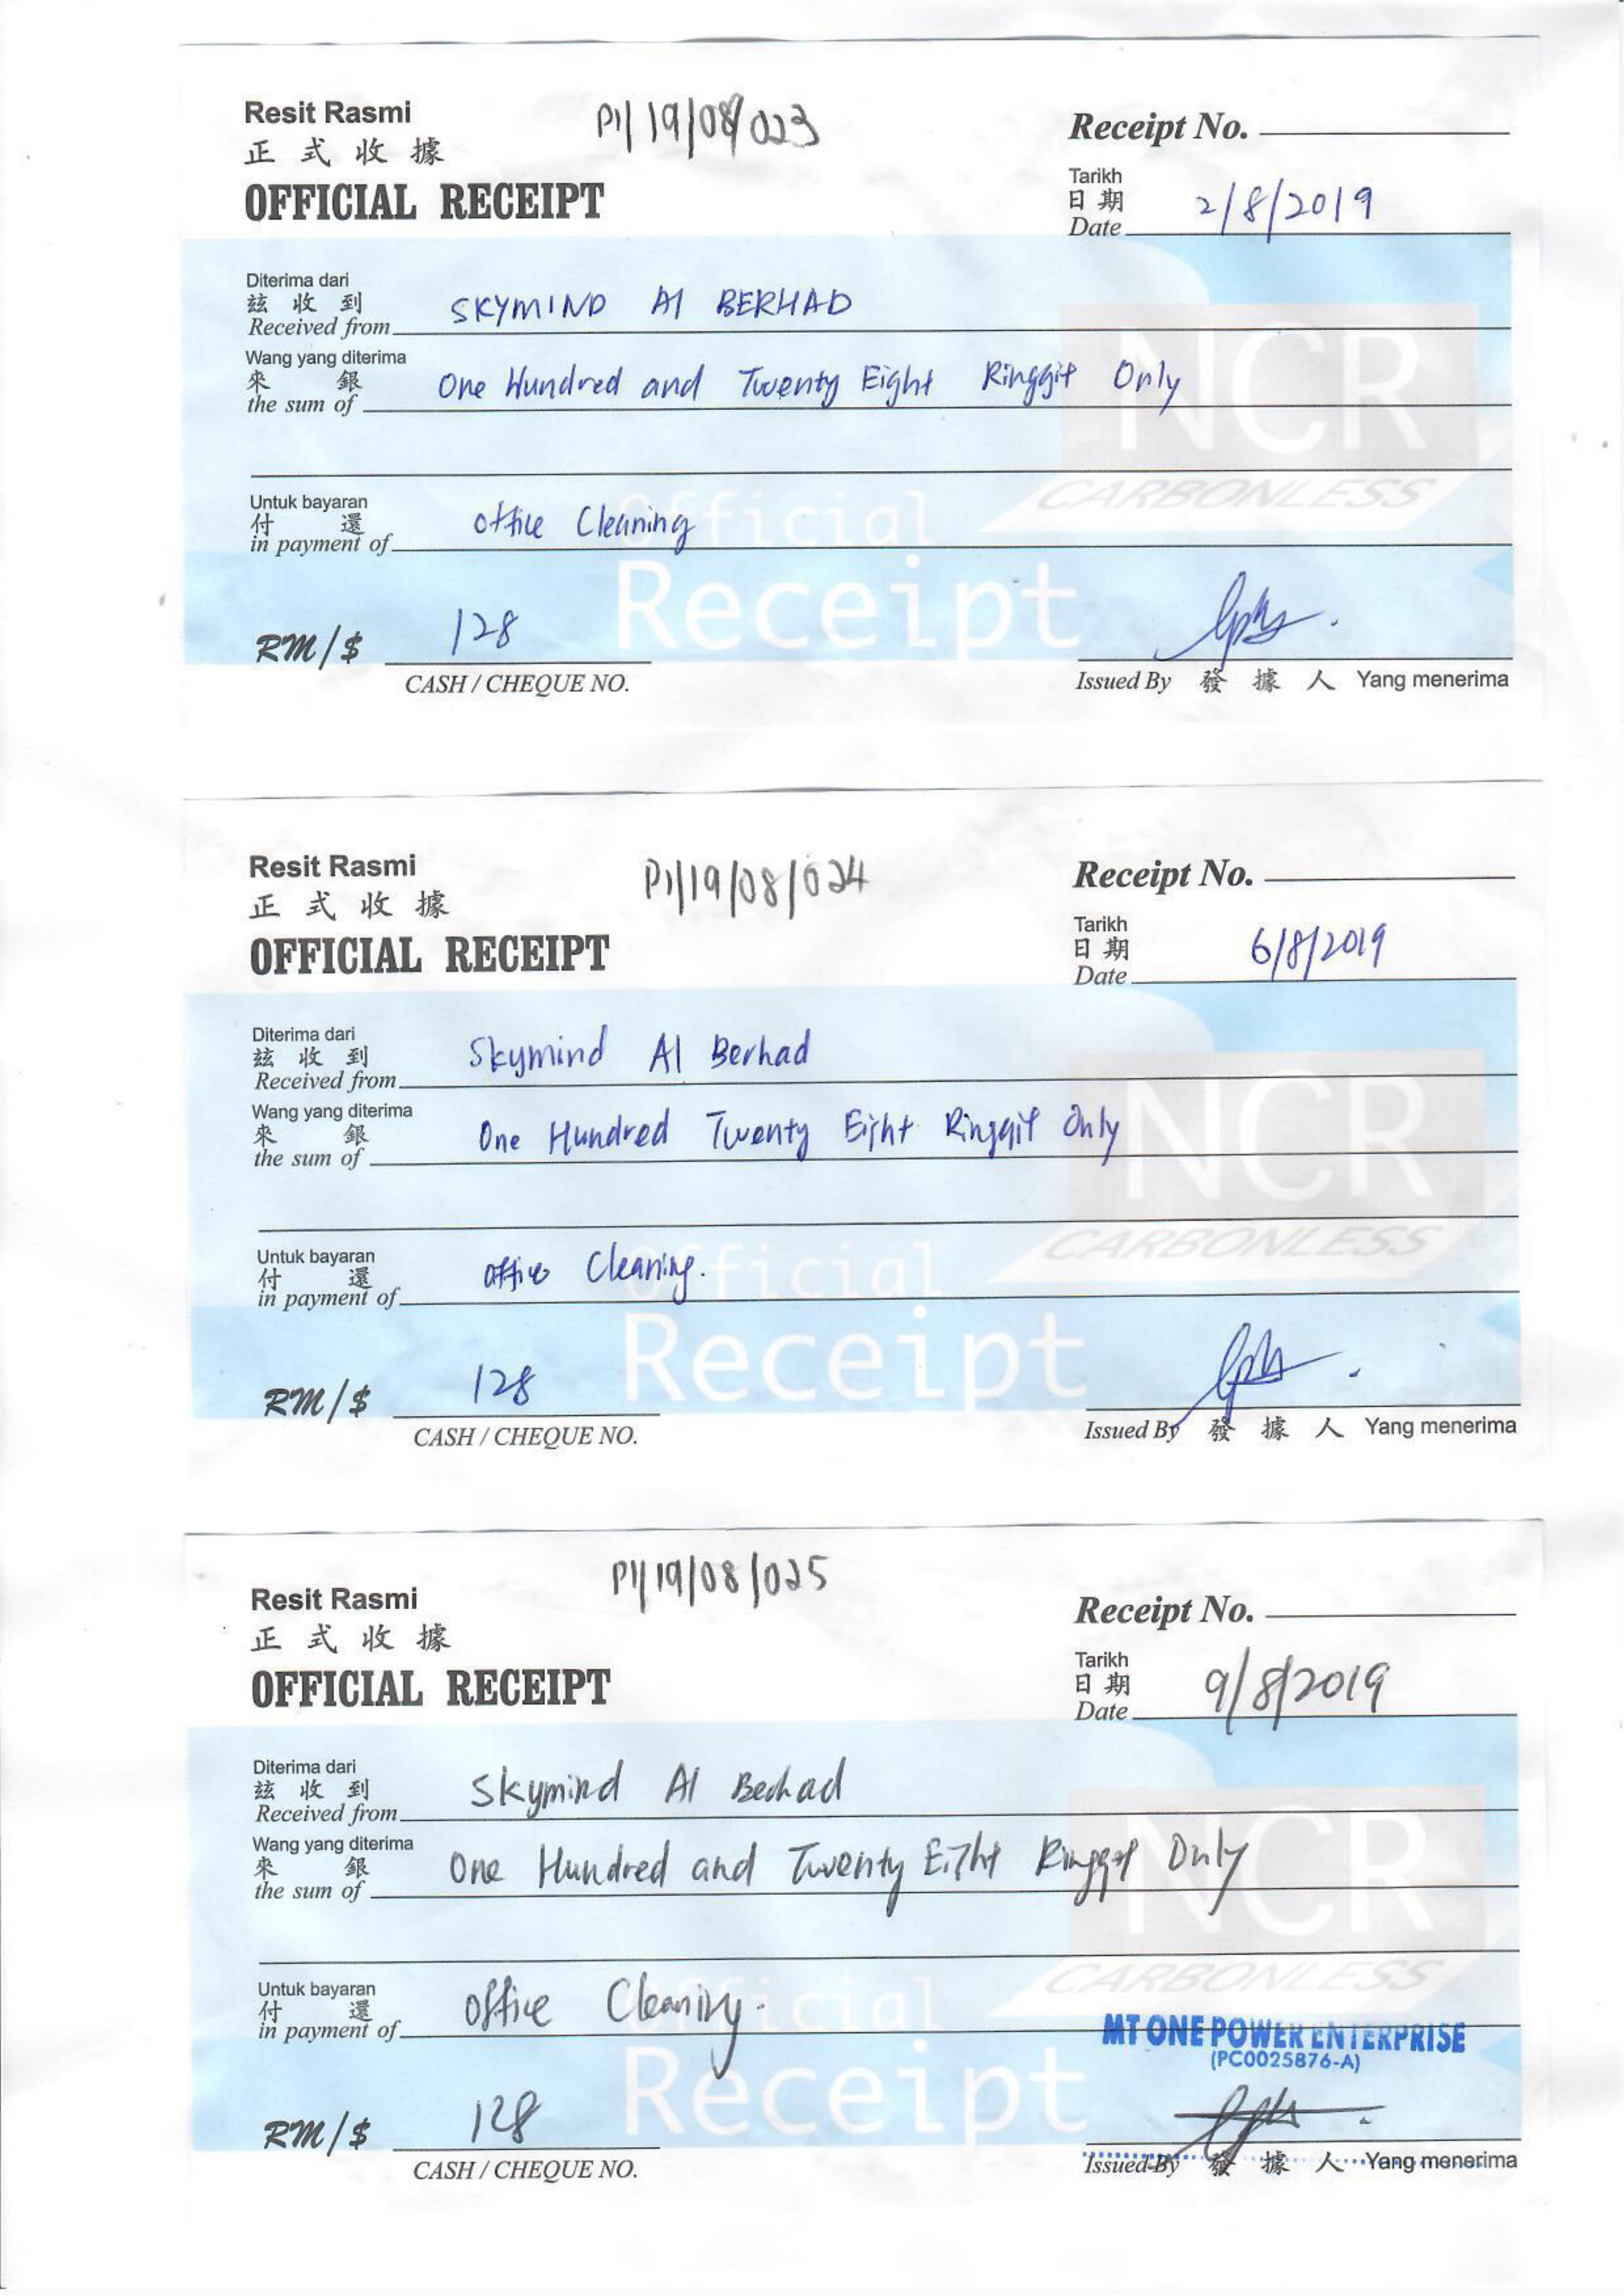 Resit Rasmi
PI/19/08/023
Receipt No.
正式收據
OFFICIAL RECEIPT
Tarikh
日期
Date 2/8/2019
Diterima dari
茲收到
Received from SKYMIND AI BERHAD
Wang yang diterima
來銀
the sum of One Hundred and Twenty Eight Ringgit Only
NCR
CARBONLESS
Untuk bayaran
付還
in payment of Office Cleaning
Official
Receipt
RM/$ 128
CASH / CHEQUE NO.
Issued By 發據人 Yang menerima
Resit Rasmi
PI/19/08/024
Receipt No.
正式收據
OFFICIAL RECEIPT
Tarikh
日期
Date 6/8/2019
Diterima dari
茲收到
Received from Skymind AI Berhad
Wang yang diterima
來銀
the sum of One Hundred Twenty Eight Ringgit Only
NCR
CARBONLESS
Untuk bayaran
付還
in payment of Office Cleaning.
Official
Receipt
RM/$ 128
CASH / CHEQUE NO.
Issued By 發據人 Yang menerima
PI/19/08/025
Resit Rasmi
Receipt No.
正式收據
OFFICIAL RECEIPT
Tarikh
日期
Date 9/8/2019
Diterima dari
茲收到
Received from Skymind AI Berhad
Wang yang diterima
來銀
the sum of One Hundred and Twenty Eight Ringgit Only
NCR
CARBONLESS
Untuk bayaran
付還
in payment of Office Cleaning.
Official
Receipt
MT ONE POWER ENTERPRISE
(PC0025876-A)
RM/$ 128
CASH / CHEQUE NO.
Issued By 發據人 Yang menerima